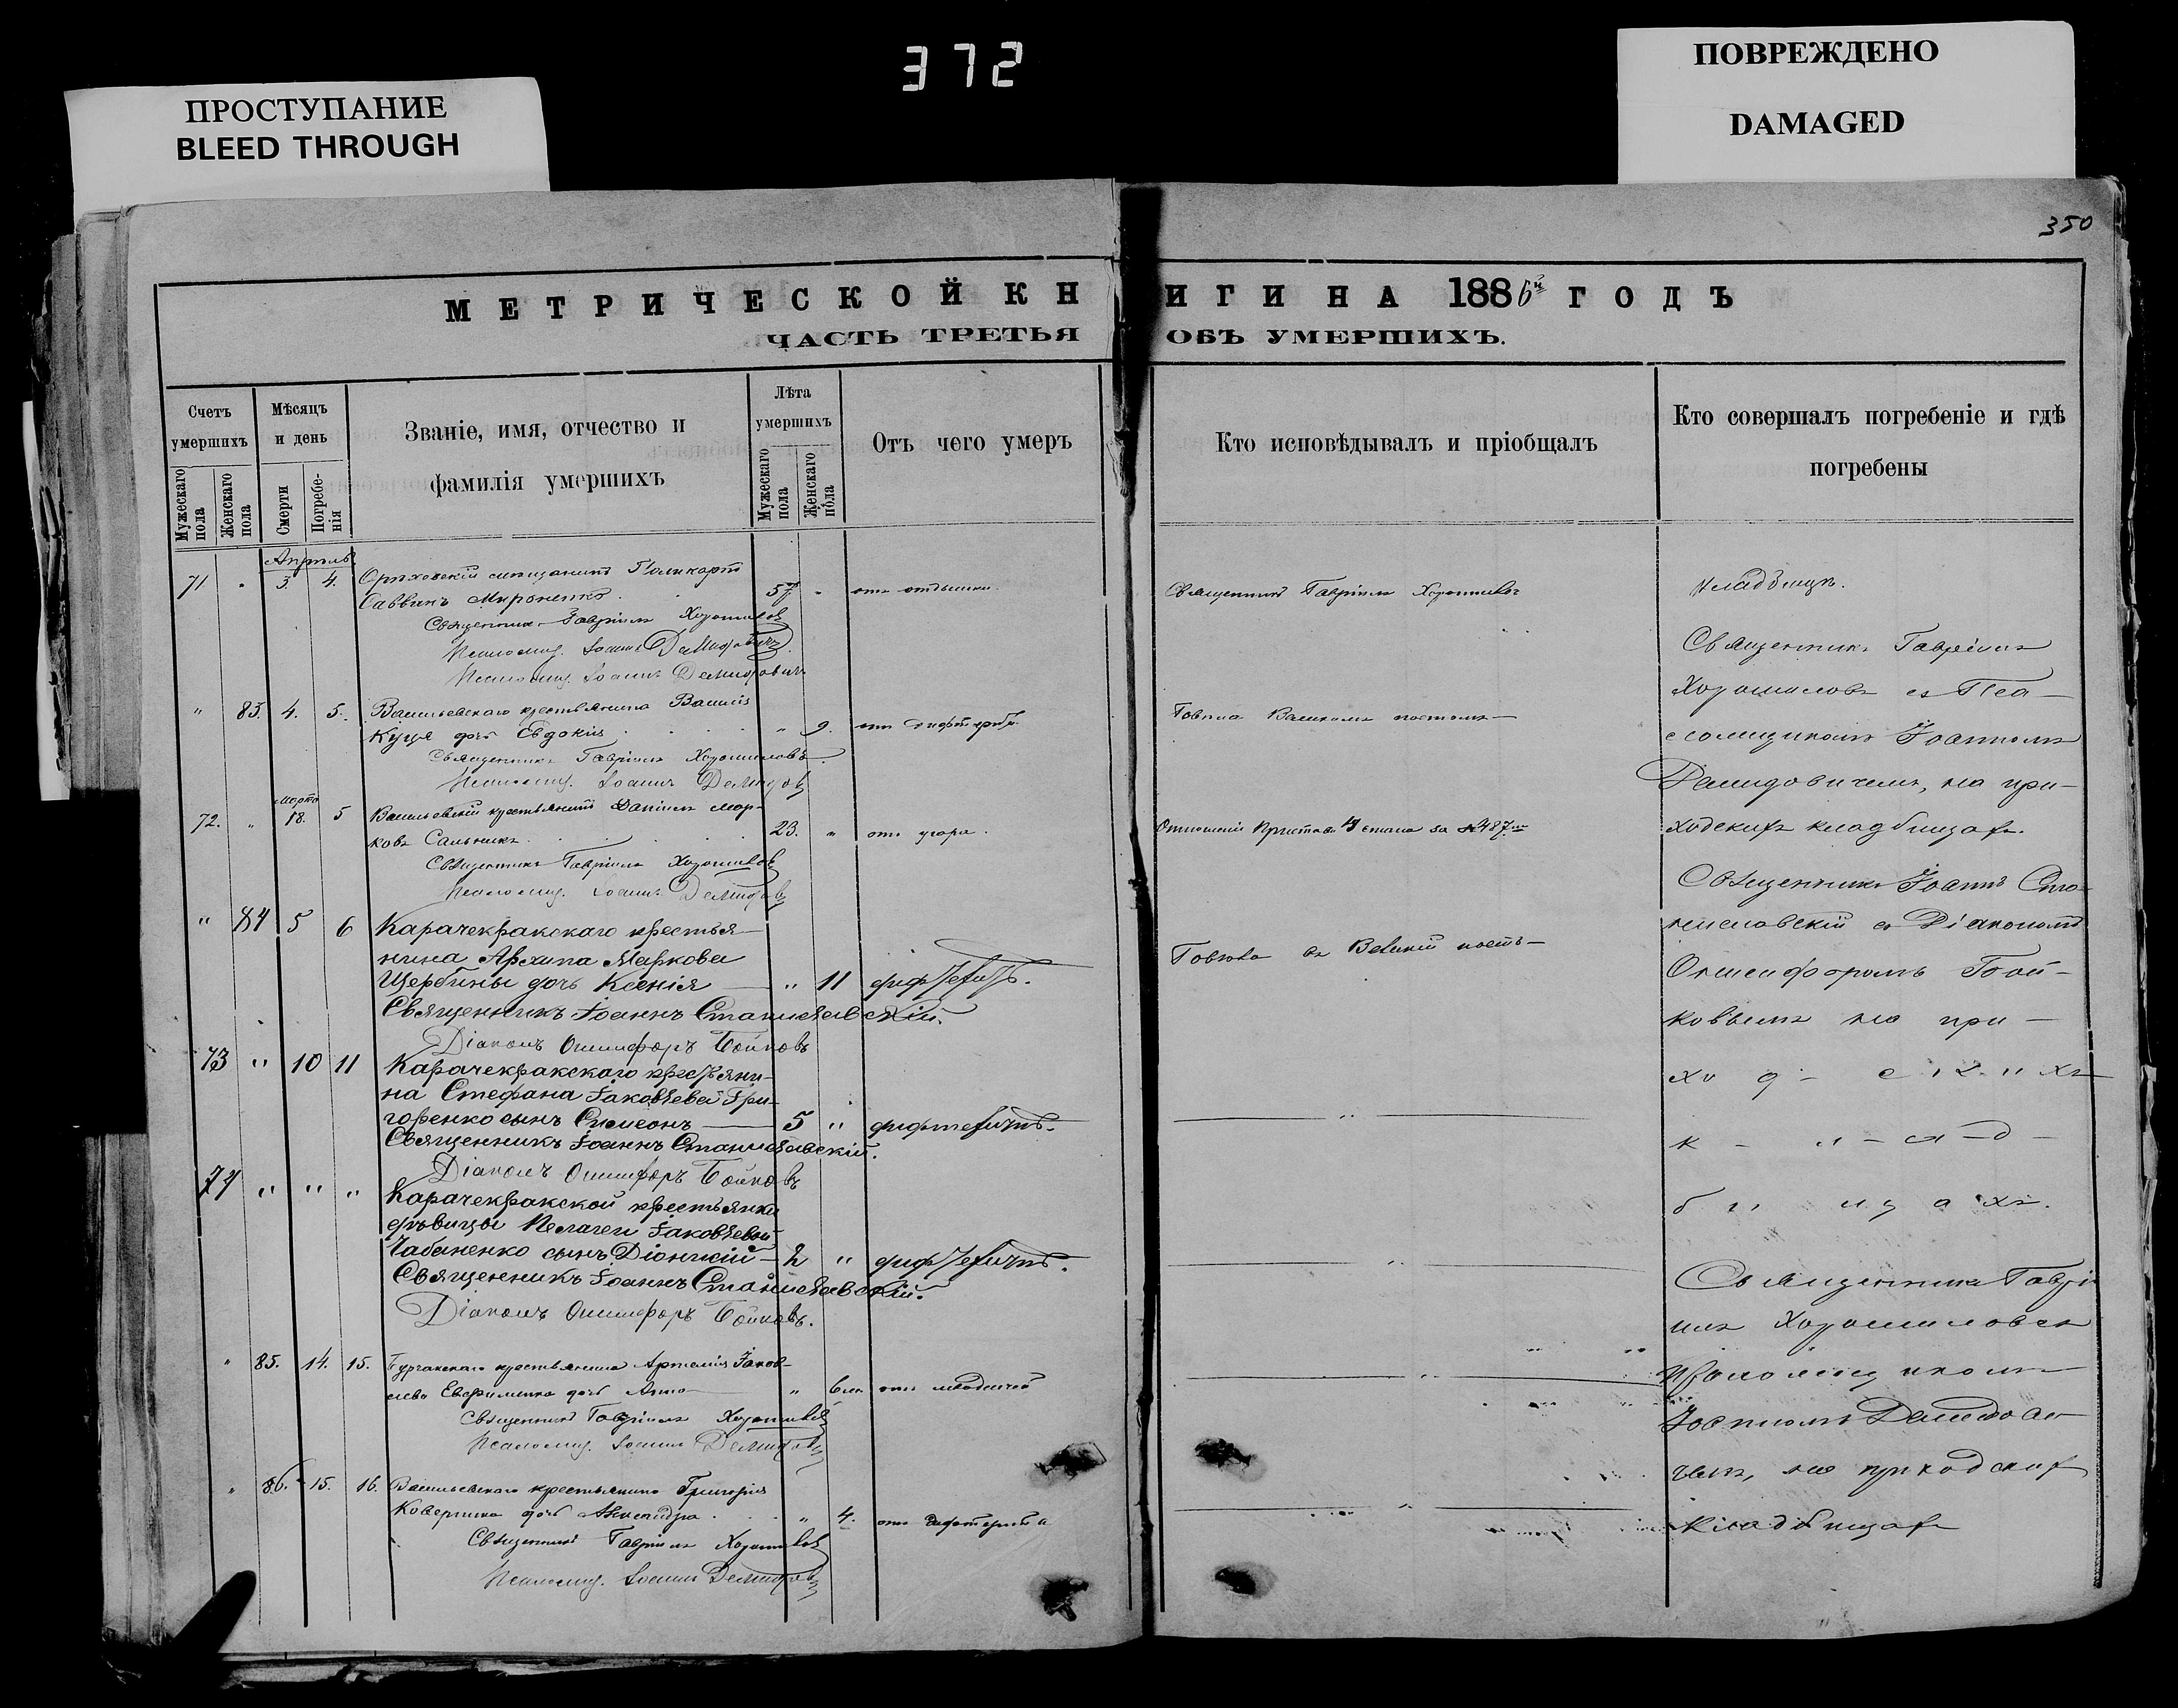 372
ПРОСТУПАНИЕ
BLEED THROUGH
ПОВРЕЖДЕНО
DAMAGED
350
МЕТРИЧЕСКОЙ КНИГИ НА 1886й ГОДЪ
ЧАСТЬ ТРЕТЬЯ ОБЪ УМЕРШИХЪ.
Счетъ умершихъ
Мужескаго пола
Женскаго пола
Мѣсяцъ и день
Смерти
Погребенія
Званіе, имя, отчество и
фамилія умершихъ
Лѣта умершихъ
Мужескаго пола
Женскаго пола
Отъ чего умеръ
Кто исповѣдывалъ и пріобщалъ
Кто совершалъ погребеніе и гдѣ
погребены
Апрѣль
71 " 3. 4. Орѣховскій мѣщанинъ Поликарпъ
Саввинъ Мироненко 57 " отъ отдышки. Священникъ Гавріилъ Хорошиловъ
кладбищѣ.
Священникъ Гавріилъ Хорошиловъ
Псаломщ. Іоаннъ Демидовичъ
Псаломщ. Іоаннъ Демидовичъ
" 83. 4. 5. Васильевскаго крестьянина
дочь Евдокія " 9. отъ
Священникъ Гавріилъ Хорошиловъ
Псаломщ. Іоаннъ Демидов
72. " Марта 18. 5 Васильевскій крестьянинъ Даніилъ Мар-
ковъ Сальникъ 23. " отъ угара. Отношеніе Пристава 4 стана за № 487
Священникъ Гавріилъ Хорошиловъ
Псаломщ. Іоаннъ Демидов
" 84 5 6 Карачекракскаго крестья-
нина Архипа Маркова
Щербины дочь Ксенія — " 11 дифтеритъ. Говѣла въ Великій постъ —
Священникъ Іоаннъ Станиславскій.
Діаконъ Онисифоръ Бойковъ
73 " 10 11 Карачекракскаго крестьяни-
на Стефана Іаковлева Гри-
горенко сынъ Симеонъ — 5 " дифтеритъ. — " —
Священникъ Іоаннъ Станиславскій.
Діаконъ Онисифоръ Бойковъ
74 " " " Карачекракской крестьянки
дѣвицы Пелагеи Іаковлевой
Чабаненко сынъ Діонисій — 2 " дифтеритъ. — " —
Священникъ Іоаннъ Станиславскій.
Діаконъ Онисифоръ Бойковъ.
" 85. 14. 15. Бурчакскаго крестьянина Артемія Іаков-
лева Евфименка дочь Анна " 6 м. отъ — " —
Священникъ Гавріилъ Хорошиловъ
Псаломщ. Іоаннъ Демидов
" 86. 15. 16. Васильевскаго крестьянина Григорія
дочь Александра " 4. отъ дифтерита — " —
Священникъ Гавріилъ Хорошиловъ
Псаломщ. Іоаннъ Демидов
Священникъ Гавріилъ
Хорошиловъ съ Пса-
ломщикомъ Іоанномъ
Демидовичемъ, на при-
ходскихъ кладбищахъ.
Священникъ Іоаннъ Ста-
ниславскій съ Діакономъ
Онисифоромъ Бой-
ковымъ на при-
ход-скихъ
к-ла-д-
бищахъ.
Священникъ Гаврі
илъ Хорошиловъ съ
Псаломщикомъ
Іоанномъ Демидови-
чемъ, на приходских
кладбищах